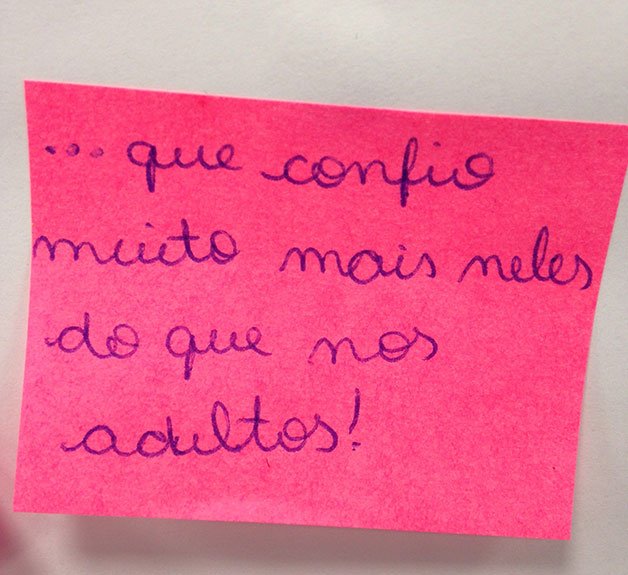 ... que confio
muito mais neles
do que nos
adultos!